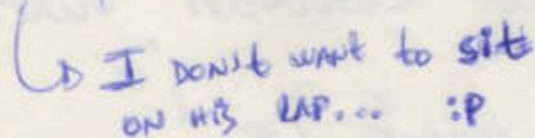 ↳ I DON'T WANT to sit
ON HIS LAP... :P